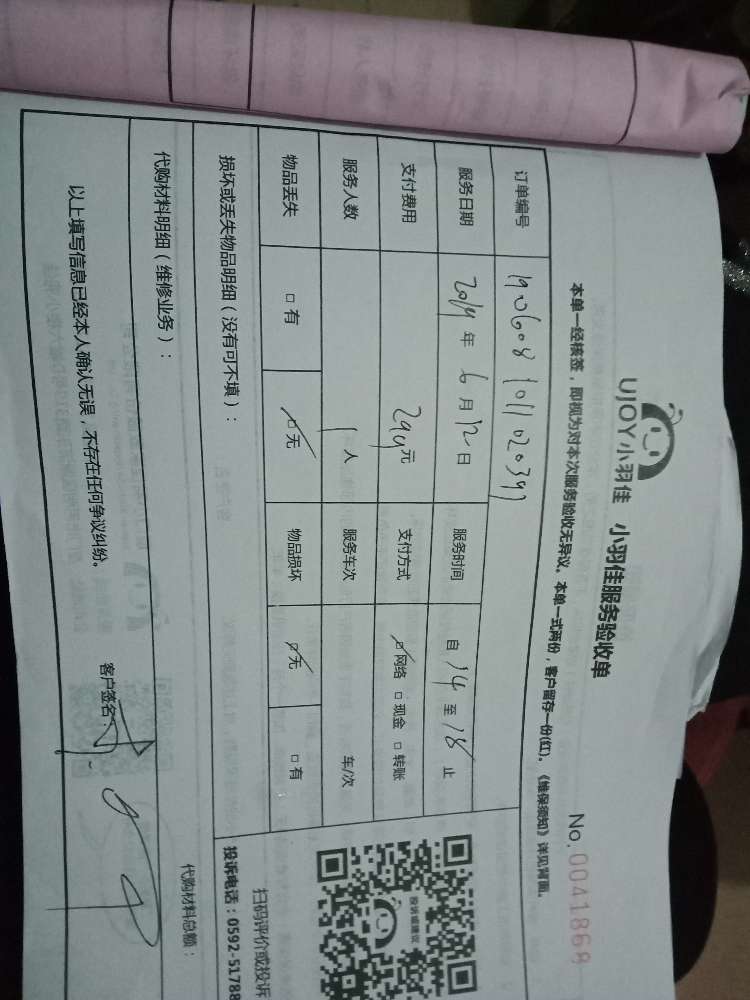 UJOY小羽佳 小羽佳服务验收单
No. 0041868
本单一经核签，即视为对本次服务验收无异议。本单一式两份，客户留存一份(红)。《维保须知》详见背面。
订单编号
服务日期 2019年 6月12日 服务时间 自 14 至 18 止
支付费用 294元 支付方式 网络 □ 现金 □ 转账
服务人数 1人 服务车次 车/次
物品丢失 □ 有 □ 无 物品损坏 □ 无 □ 有
损坏或丢失物品明细（没有可不填）：
代购材料明细（维修业务）：
代购材料总额：
以上填写信息已经本人确认无误，不存在任何争议纠纷。
客户签名：
投诉或建议
扫码评价或投诉
投诉电话：0592-51788